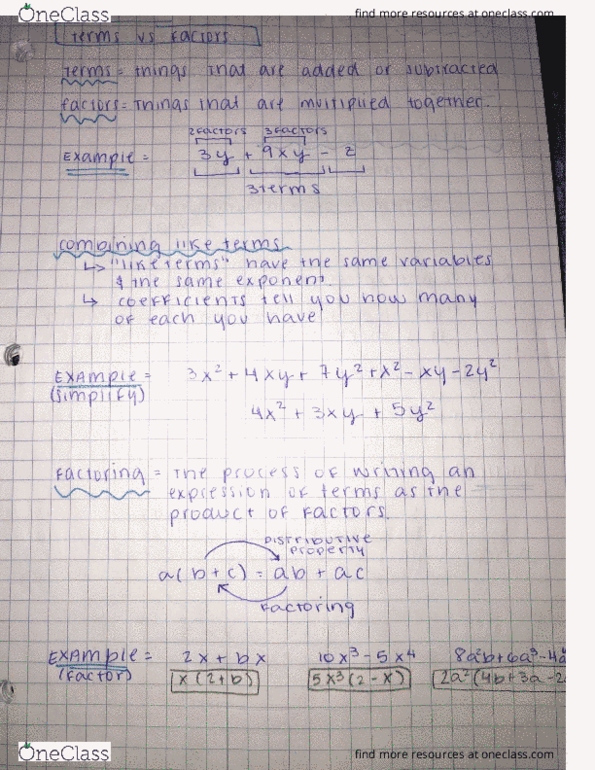 OneClass
find more resources at oneclass.com
Terms vs Factors
Terms = things that are added or subtracted
Factors = Things that are multiplied together.
2 factors 3 factors
Example = 3y + 9xy - 2
3 terms
combining like terms
↳ "like terms" have the same variables
& the same exponent.
↳ coefficients tell you how many
of each you have
Example = 3x² + 4xy + 7y² + x² - xy - 2y²
(simplify)
4x² + 3xy + 5y²
Factoring = The process of writing an
expression of terms as the
product of factors.
Distributive
property
a(b+c) = ab + ac
Factoring
Example = 2x + bx 10x³ - 5x⁴ 8a²b + 6a³ - 4a
(Factor) x(2+b) 5x³(2-x) 2a²(4b+3a-2
OneClass
find more resources at oneclass.com